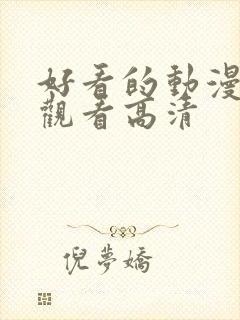 好看的動漫
觀看高清
倪夢嬌